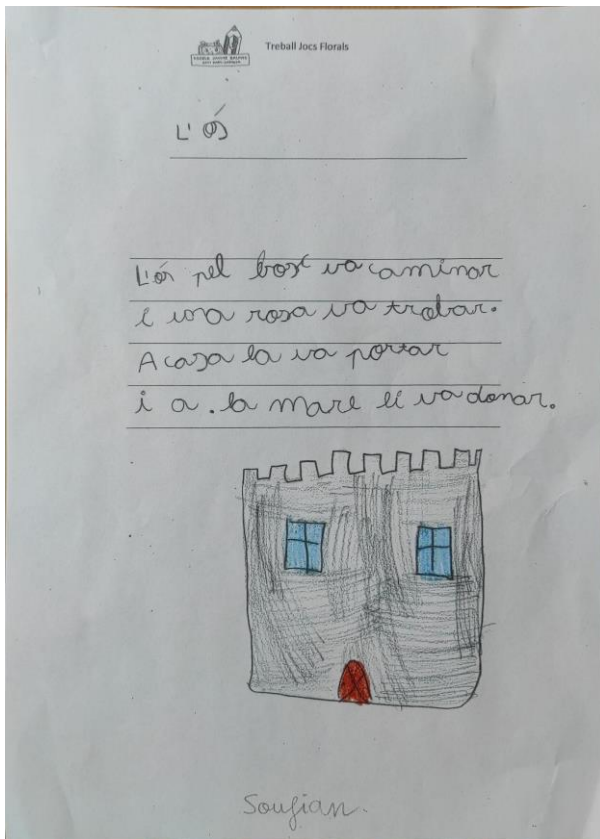 Treball Jocs Florals
L'ós
L'ós pel bosc va caminar
i una rosa va trobar.
A casa la va portar
i a . la mare li va donar.
Soufian.